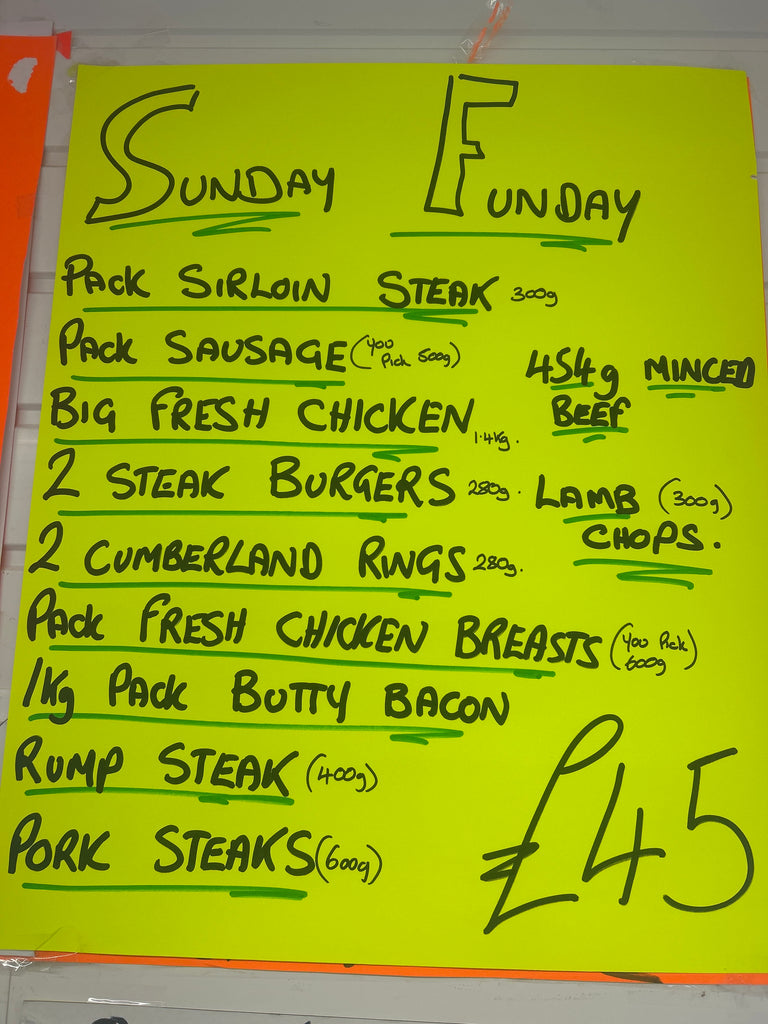 SUNDAY FUNDAY
PACK SIRLOIN STEAK 300g
PACK SAUSAGE (YOU PICK 500g)
454g MINCED
BEEF
BIG FRESH CHICKEN 1.4Kg.
2 STEAK BURGERS 280g.
LAMB (300g)
CHOPS.
2 CUMBERLAND RINGS 280g.
PACK FRESH CHICKEN BREASTS (YOU PICK) 600g)
1Kg PACK BUTTY BACON
RUMP STEAK (400g)
PORK STEAKS (600g)
£45